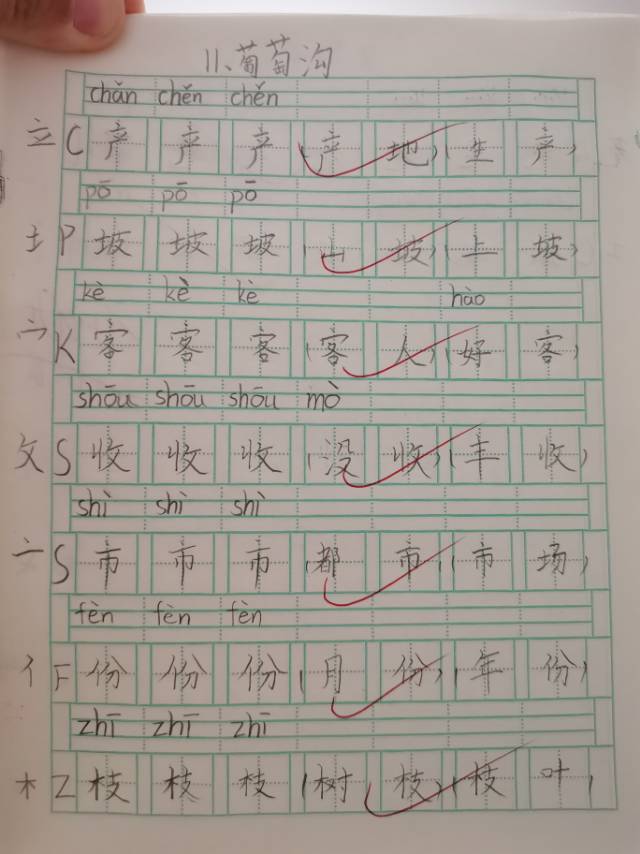 11、葡萄沟
chǎn chěn chěn
立 C 产 产 产 (产 地)(生 产)
pō pō pō
土 P 坡 坡 坡 (山 坡)(上 坡)
kè kè kè hào
宀 K 客 客 客 (客 人)(好 客)
shōu shōu shōu mò
攵 S 收 收 收 (没 收)(丰 收)
shì shì shì
亠 S 市 市 市 (都 市)(市 场)
fèn fèn fèn
亻 F 份 份 份 (月 份)(年 份)
zhī zhī zhī
木 Z 枝 枝 枝 (树 枝)(枝 叶)